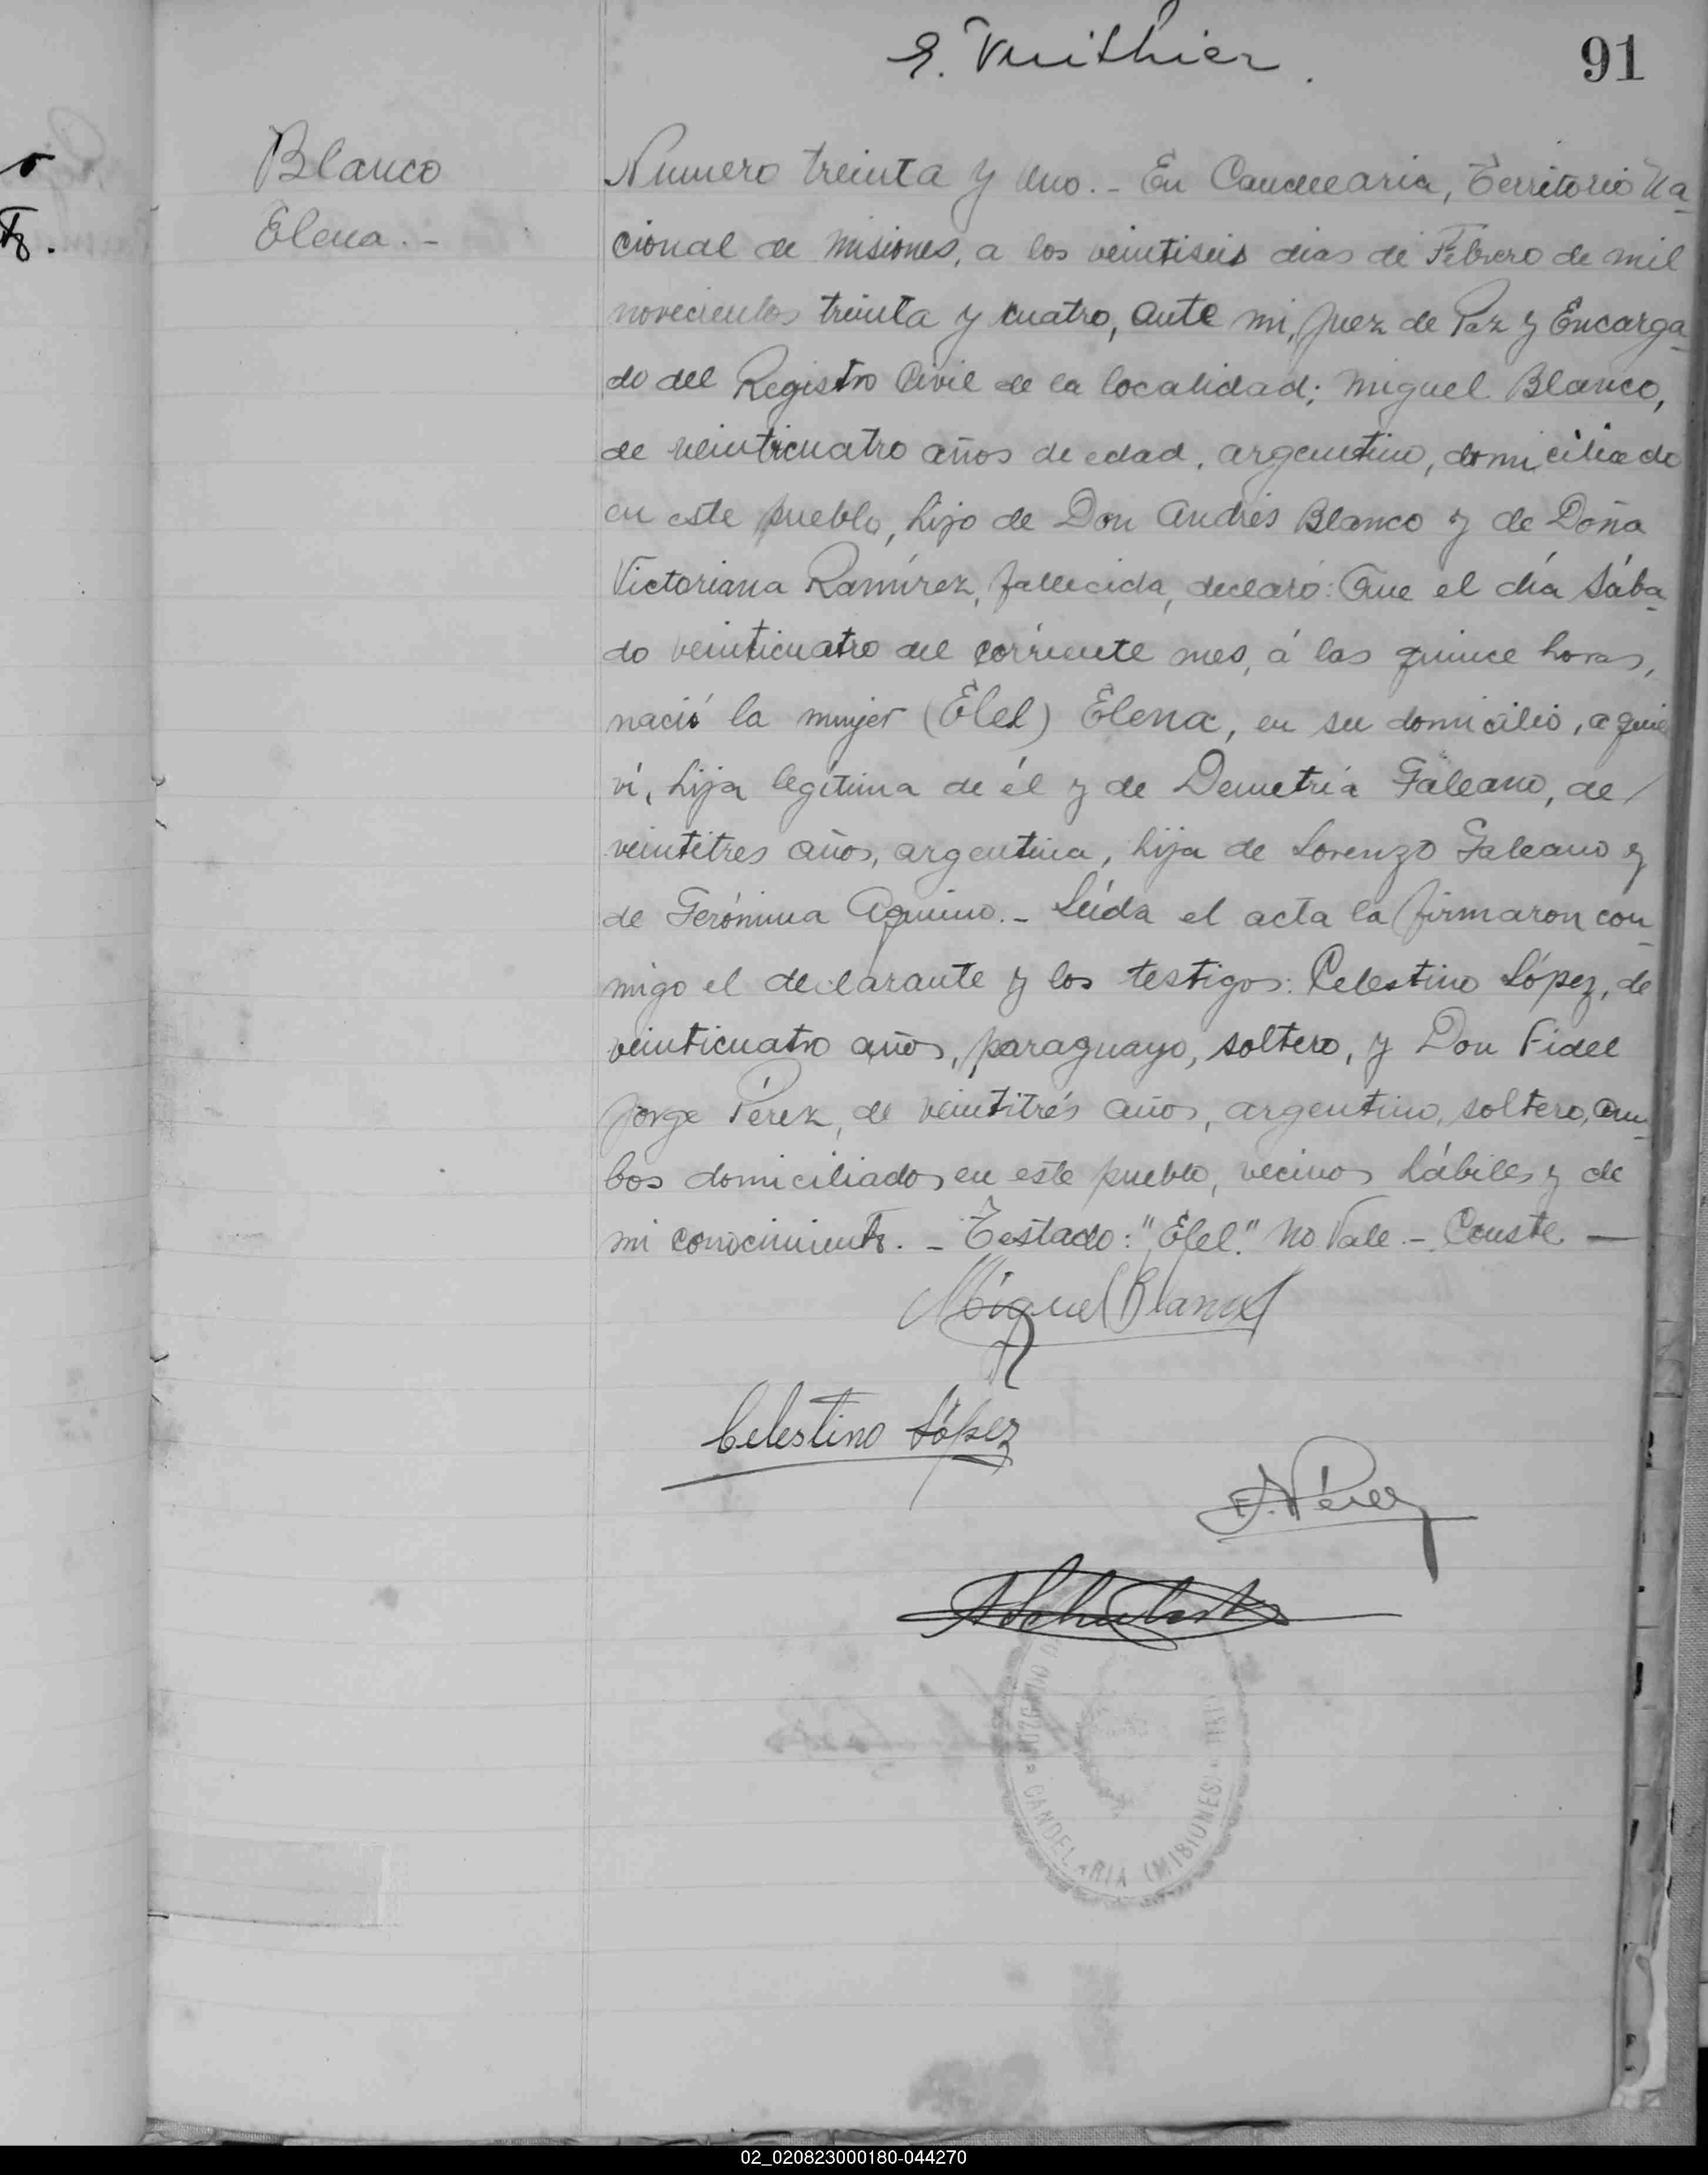 E. Vuithier.
91
Blanco
Elena. -
Numero treinta y uno. - En Candelaria, Territorio Na-
cional de Misiones, a los veintiseis dias de Febrero de mil
novecientos treinta y cuatro, ante mi, Juez de Paz y Encarga-
do del Registro Civil de la localidad; Miguel Blanco,
de veinticuatro años de edad, argentino, domiciliado
en este pueblo, hijo de Don Andrés Blanco y de Doña
Victoriana Ramírez, fallecida, declaró: Que el día Sába-
do veinticuatro del corriente mes, á las quince horas,
nació la mujer (Elel) Elena, en su domicilio, a quien
ví, hija legítima de él y de Demetria Galeano, de
veintitres años, argentina, hija de Lorenzo Galeano y
de Gerónima Aquino. - Leída el acta la firmaron con-
migo el declarante y los testigos: Celestino López, de
veinticuatro años, paraguayo, soltero, y Don Fidel
Jorge Pérez, de veintitrés años, argentino, soltero, am-
bos domiciliados en este pueblo, vecinos hábiles y de
mi conocimiento. - Testado: "Elel." No Vale. - Conste —
Miguel Blanco
Celestino López
F. J. Pérez
JUZGADO D
CANDELARIA (MISIONES)
02_020823000180-044270